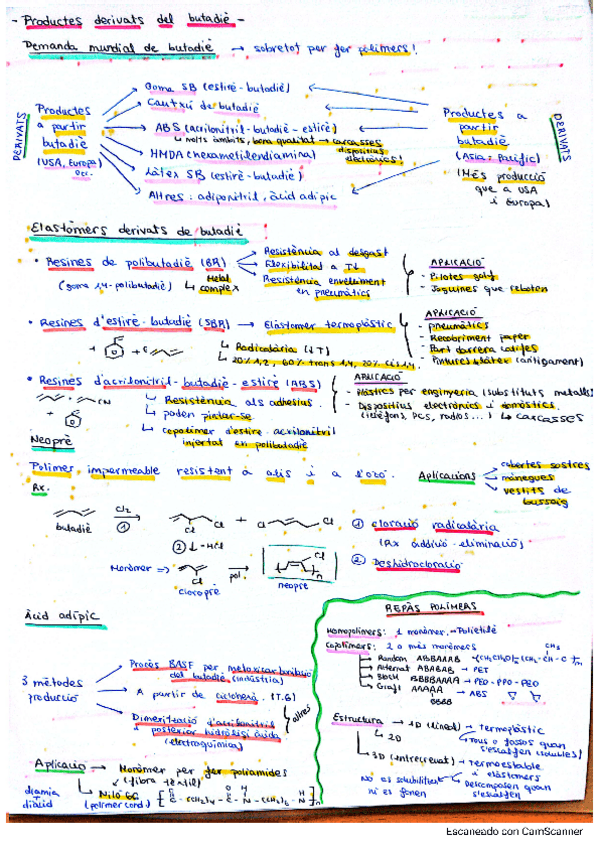 - Productes derivats del butadiè -
Demanda mundial de butadiè → sobretot per fer polímers!
DERIVATS
Productes a partir butadiè (USA, Europa) Occ.
Goma SB (estirè-butadiè)
Cautxú de butadiè
ABS (acrilonitril-butadiè-estirè)
↳ molts àmbits, bona qualitat → carcasses dispositius electrònics!
HMDA (hexametilendiamina)
Làtex SB (estirè-butadiè)
Altres: adiponitril, àcid adípic
Productes a partir butadiè (Asia-Pacífic)
(Més producció que a USA i Europa)
DERIVATS
Elastòmers derivats de butadiè
• Resines de polibutadiè (BR)
(goma 1,4-polibutadiè) ↳ Metal complex
Resistència al desgast
Flexibilitat a T↓
Resistència envelliment en pneumàtics
APLICACIÓ
- Pilotes golf
- Joguines que reboten
• Resines d'estirè-butadiè (SBR) → Elastòmer termoplàstic
↳ Radicalària (↓T)
↳ 20% 1,2, 60% trans 1,4, 20% cis 1,4
APLICACIÓ
- pneumàtics
- Recobriment paper
- Part darrera catifes
- Pintures làtex (antigament)
• Resines d'acrilonitril-butadiè-estirè (ABS)
↳ Resistència als adhesius.
↳ poden pintar-se
↳ copolímer d'estirè-acrilonitril injertat en polibutadiè
APLICACIÓ
- Plàstics per enginyeria (substituts metalls)
- Dispositius electrònics i domèstics.
(telèfons, PCs, radios...) ↳ carcasses
Neoprè
Polímer impermeable resistent a olis i a l'ozó.
Aplicacions
cobertes sostres
mànegues
vestits de busseig
Rx.
butadiè
Cl2
①
Cl
Cl
+
Cl
Cl
① cloració radicalària
(Rx addició-eliminació)
② ↓ -HCl
② Deshidrocloració
Monòmer ⇒
Cl
cloroprè
pol
Cl
n
neoprè
Àcid adípic
3 mètodes producció
Procés BASF per metoxicarbonilació del butadiè (indústria)
A partir de ciclohexà. (T.6)
Dimerització d'acrilonitril i posterior hidròlisi àcida (electroquímica)
altres
Aplicació → Monòmer per fer poliamides
↳ (fibra tèxtil)
diamina + diàcid
↳ Niló 66
(polímer cond.)
REPÀS POLÍMERS
Homopolímers: 1 monòmer. - Polietilè
Copolímers: 2 o més monòmers
Random ABBAAAB
Alternat ABABAB → PET
Block BBBBAAAA → PEO-PPO-PEO
Graft AAAAA → ABS
BBBB
Estructura → 1D (lineal) → Termoplàstic
↳ 2D
↳ Tous o fosos quan s'escalfen (solubles)
↳ 3D (entrecreuat) → Termoestable i elastòmers
No es solubilitzen ni es fonen
↳ Descomposen quan s'escalfen
Escaneado con CamScanner